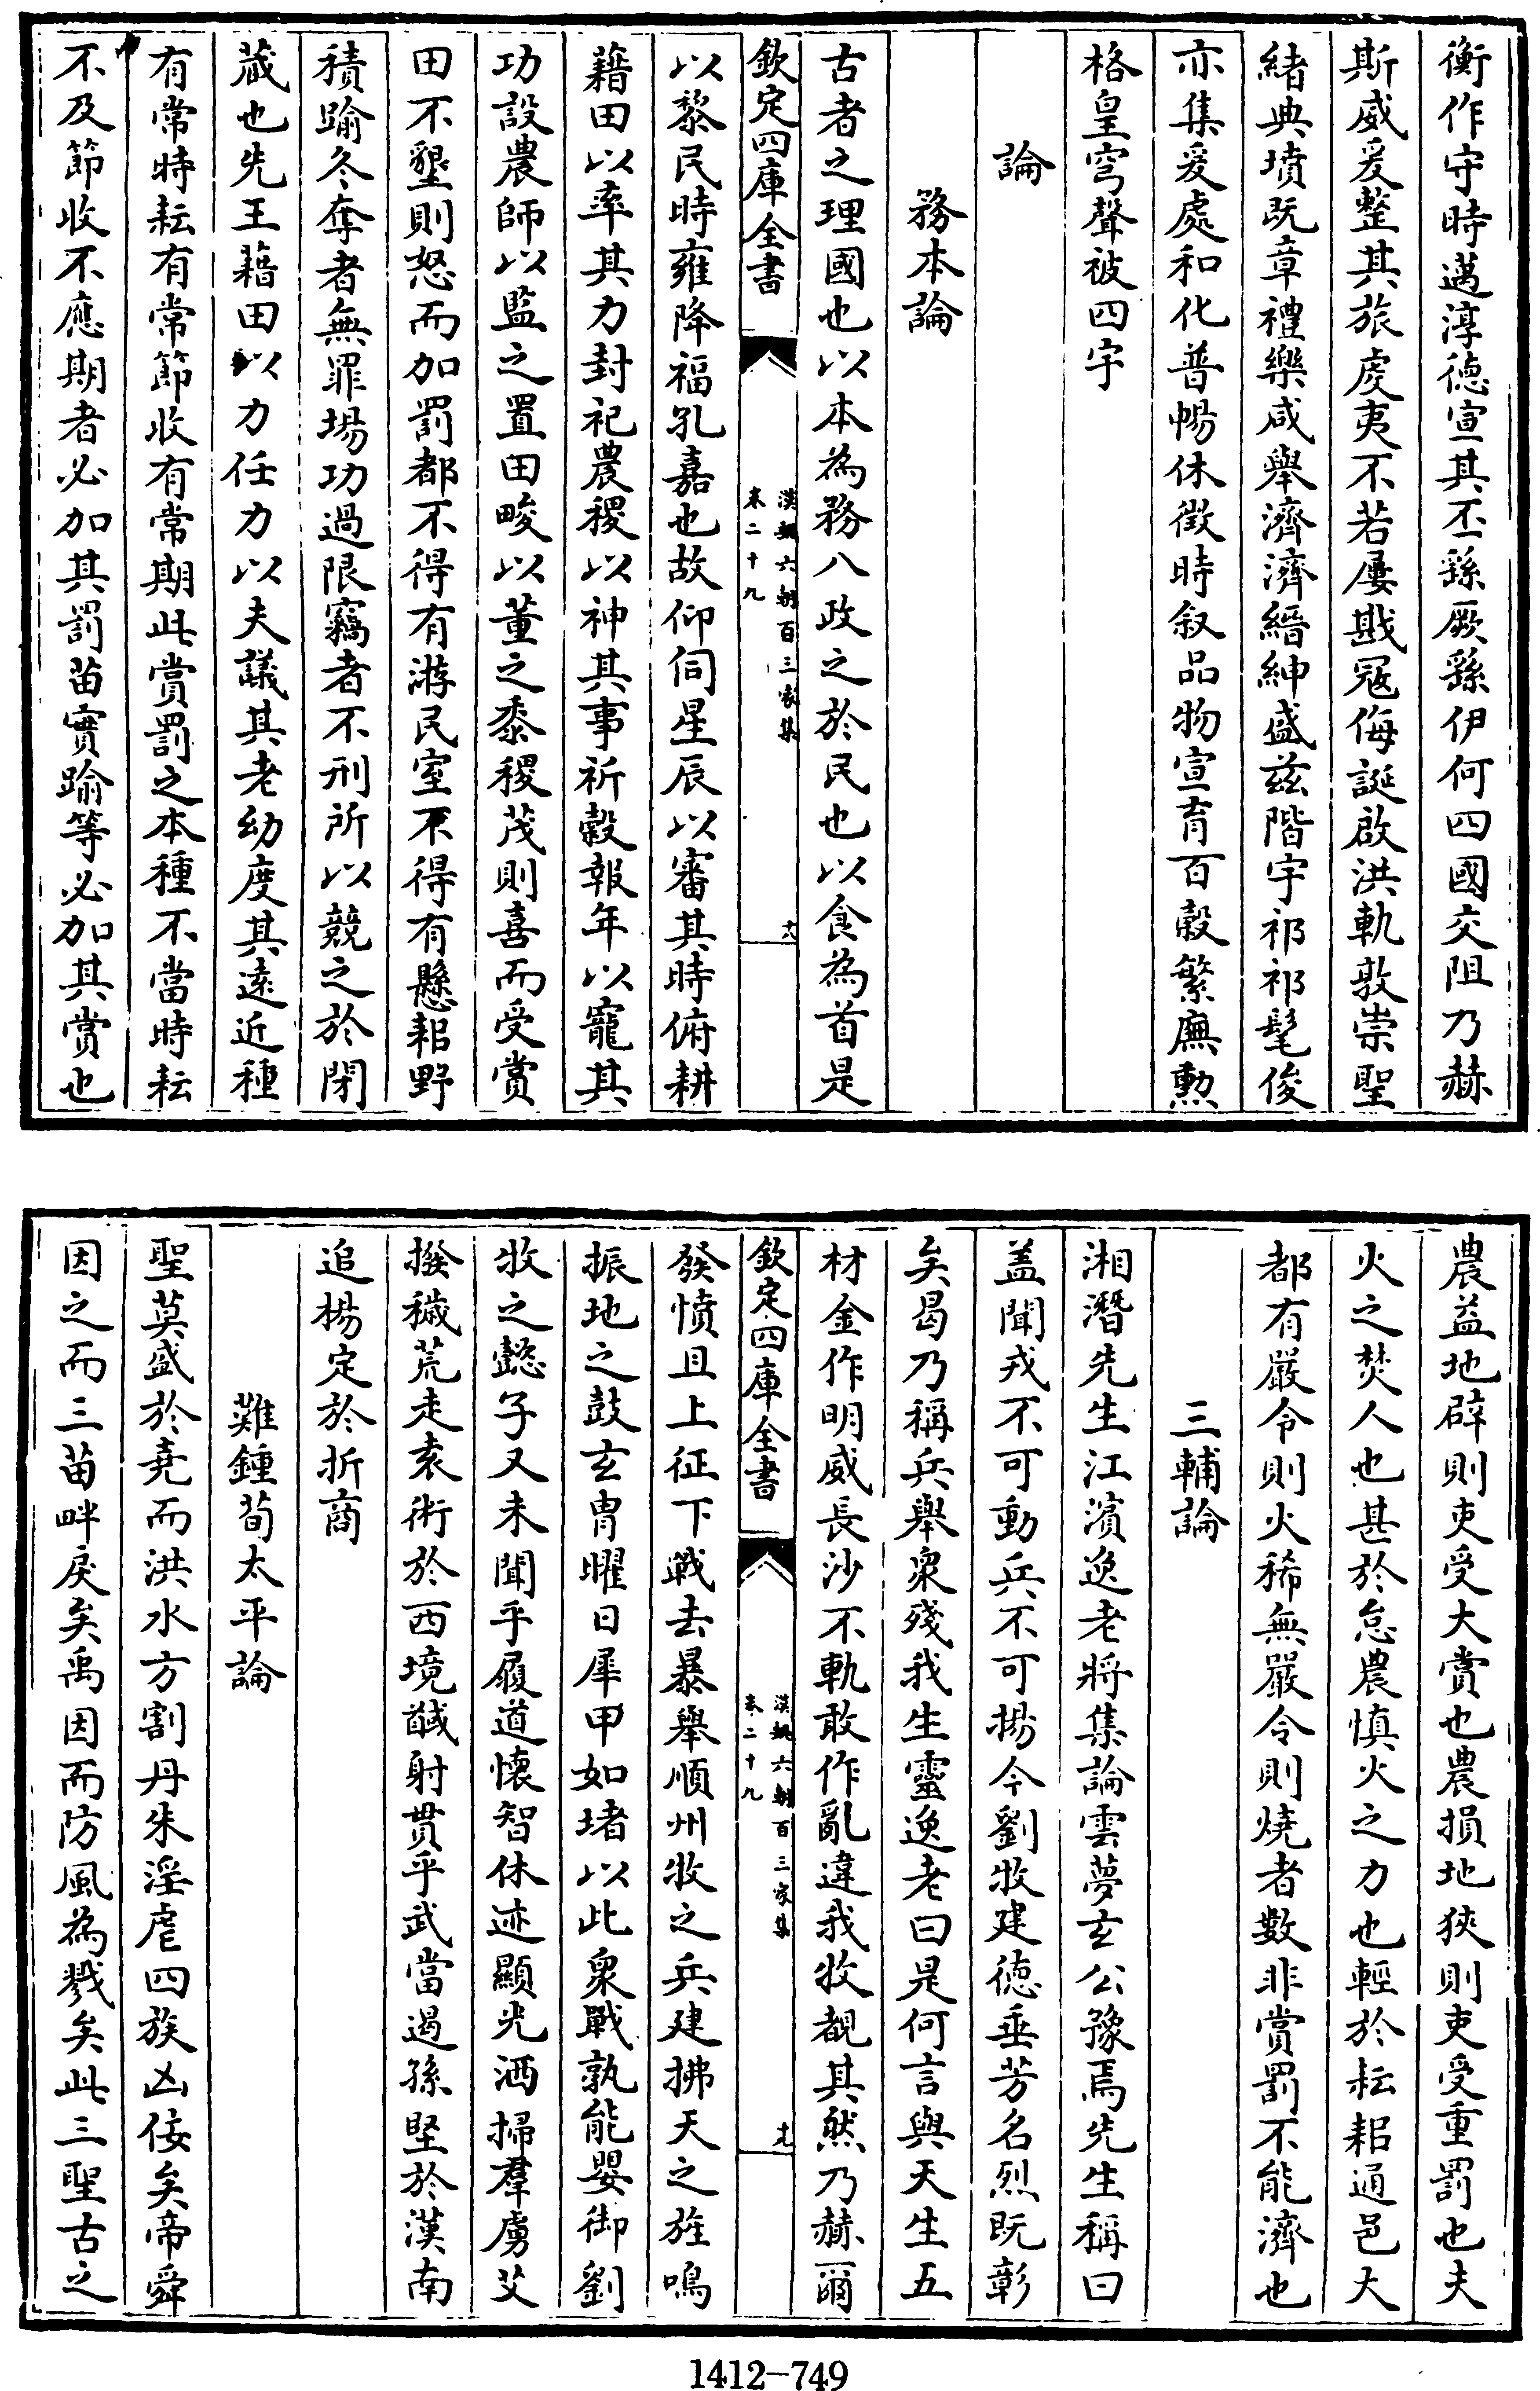 衡作守時邁淳徳宣其丕繇厥繇伊何四國交阻乃赫
斯威爰整其旅虔夷不若屢戡冦侮誕啟洪軌敦崇聖
緒典墳既章禮樂咸舉濟濟縉紳盛兹階宇祁祁髦俊
亦集爰處和化普暢休徴時叙品物宣育百穀繁廡勲
格皇穹聲被四宇
論
務本論
古者之理國也以本為務八政之於民也以食為首是
欽定四庫全書
漢魏六朝百三家集
卷二十九
十八
以黎民時雍降福孔嘉也故仰伺星辰以審其時俯耕
藉田以率其力封祀農稷以神其事祈穀報年以寵其
功設農師以監之置田畯以董之黍稷茂則喜而受賞
田不墾則怒而加罰都不得有游民室不得有懸耜野
積踰冬奪者無罪場功過限竊者不刑所以競之於閉
蔵也先王藉田以力任力以夫議其老幼度其逺近種
有常時耘有常節收有常期此賞罰之本種不當時耘
不及節收不應期者必加其罰苗實踰等必加其賞也
農益地辟則吏受大賞也農損地狹則吏受重罰也夫
火之焚人也甚於怠農慎火之力也輕於耘耜通邑大
都有嚴令則火稀無嚴令則燒者數非賞罰不能濟也
三輔論
湘潛先生江濱逸老將集論雲夢玄公豫焉先生稱曰
盖聞戎不可動兵不可揚今劉牧建徳垂芳名烈既彰
矣曷乃稱兵舉衆殘我生靈逸老曰是何言與天生五
材金作明威長沙不軌敢作亂違我牧覩其然乃赫爾
欽定四庫全書
漢魏六朝百三家集
卷二十九
十九
發憤且上征下戰去暴舉順州牧之兵建拂天之旌鳴
振地之鼓玄胄曜日犀甲如堵以此衆戰孰能嬰御劉
牧之懿子又未聞乎履道懷智休迹顯光洒掃羣虜艾
撥穢荒走袁術於西境馘射貫乎武當遏孫堅於漢南
追楊定於折商
難鍾荀太平論
聖莫盛於堯而洪水方割丹朱淫虐四族凶佞矣帝舜
因之而三苗畔戾矣禹因而防風為戮矣此三聖古之
1412-749